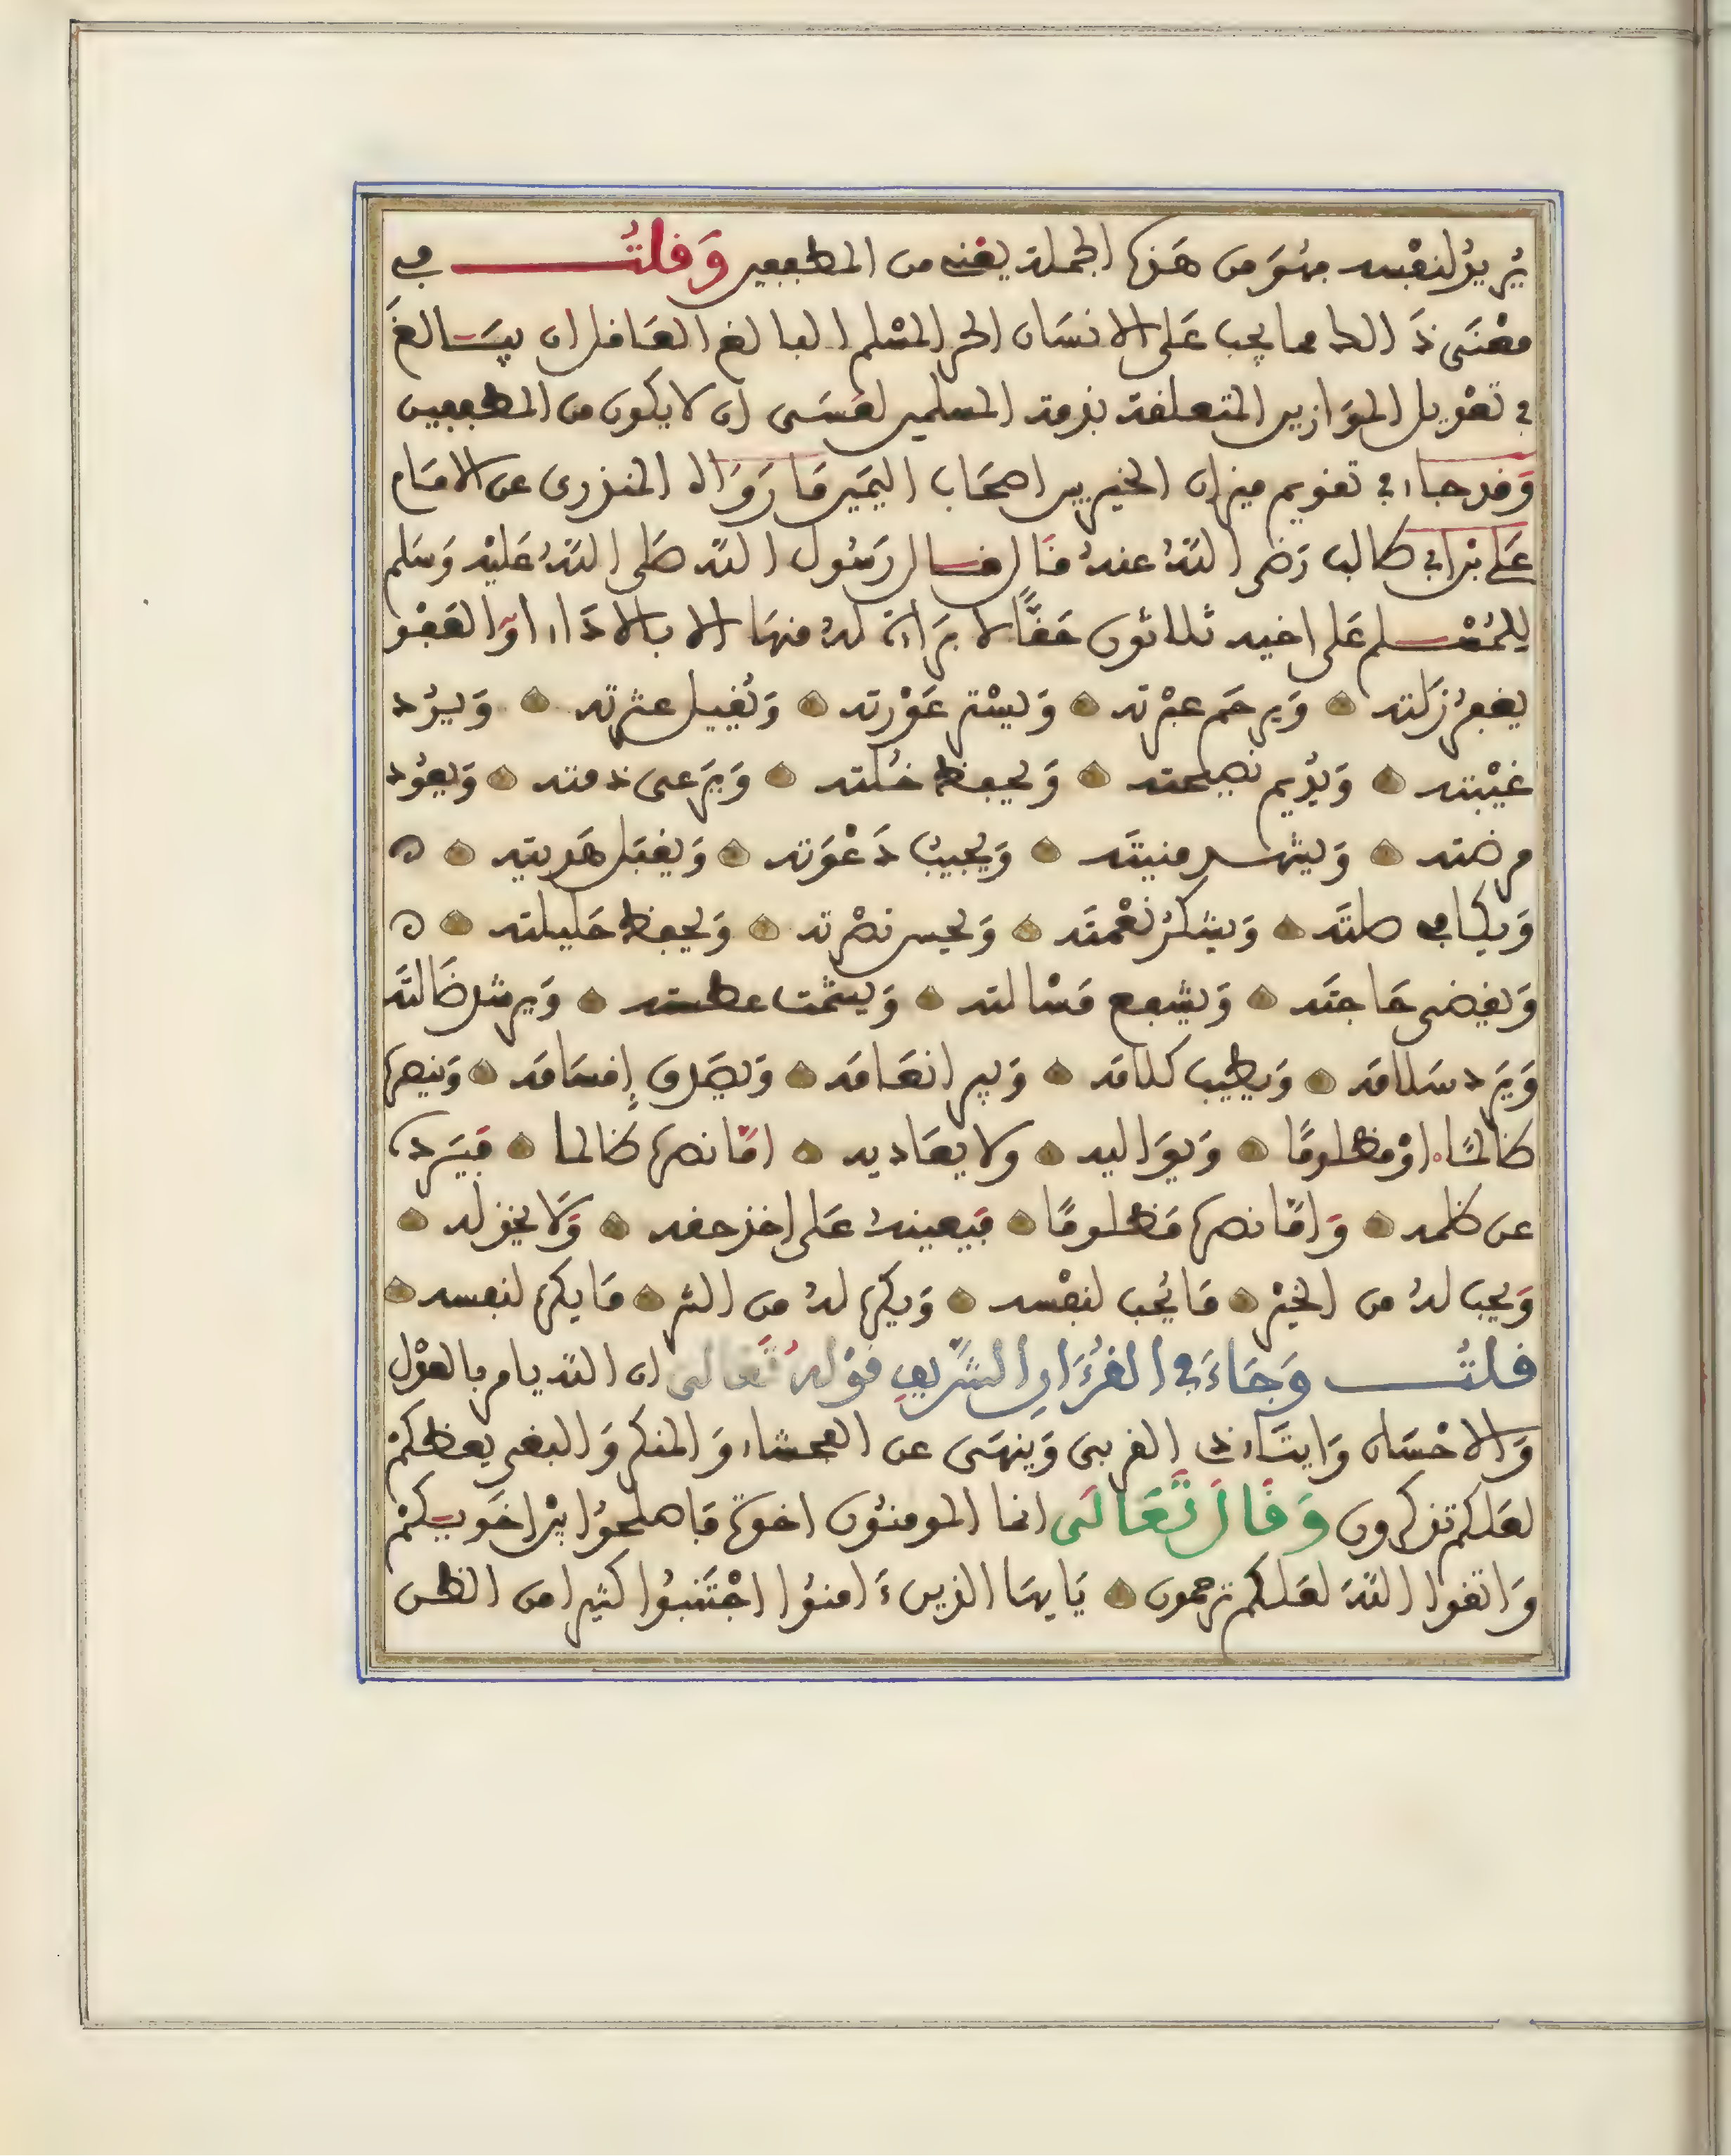 يُريدُ لنفْسه فهُوَ من هَذه الجملة يعْني من المطففين وَقلتُ في
معْنَى ذَالك مما يجب عَلى الانسَان الحر المسْلم البالغ العَاقل ان يبَالغَ
في تعْديل الموَازين المتعلقة بذمة المسلمين لعَسَى ان لا يكون من المطففين
وَقد جاء في تقويم ميزان الخيريين اصحَاب اليَمين مَا رَوَاه المنذرى عن الامَام
عَلي بْن ابي طالب رَضي اللهُ عنهُ قَال قال رَسُول الله صَلى اللهُ عَليْه وَسَلم
للمُسْلم عَلى اخيه ثلاثون حَقًّا لا بَرَاءة لهُ منهَا الا بالادَاء اوَ العَفْو
يغفرُ زَلته وَيرحَم عبْرته وَيسْتر عَوْرته وَيُقيل عثرته وَيرُد
غيْبته وَيُديم نصيحته وَيحفظ خُلته وَيَرعى ذمته وَيعُود
مرضته وَيشهد منيتَه وَيُجيبُ دَعْوَته وَيقبَل هَديته ه
وَيكافي صلتَه وَيشكرُ نعْمتَه وَيحسن نصْرته وَيحفظ حَليلته ه
وَيقضى حَاجتَه وَيشفع مَسْالته وَيشمت عطسته وَيرشد ضَالتَه
وَيَرد سَلامَه وَيطيب كلامَه وَيبر انعَامَه وَيصَدق إقسَامَه وَينصره
ظالمًا اوْ مظلومًا وَيوَاليه ولا يعَاديه امَّا نصره ظالما فيَرده
عن ظلمه وَامَّا نصره مَظلومًا فيعينهُ عَلى اخذ حقه وَلا يخذله
وَيحب لهُ من الخيْر مَا يُحب لنفْسه وَيكره لهُ من الشر مَا يكره لنفسه
قلتُ وَجَاءَ في القُرْءَانِ الشَّريفِ قوْلهُ تَعَالى ان الله يامر بالعدْل
وَالاحْسَان وَايتَاء ذي القربى وَينهَى عن الفحشاء وَالمنكر وَالبغي يعظكمْ
لعَلكم تذكرون وَقَالَ تَعَالَى انما المومنُون اخوة فَاصلحُوا بيْن اخَويكمْ
وَاتقوا اللهَ لعَلكم ترحمون يَايهَا الذين ءَامنوُا اجْتَنبُوا كثيرا من الظن